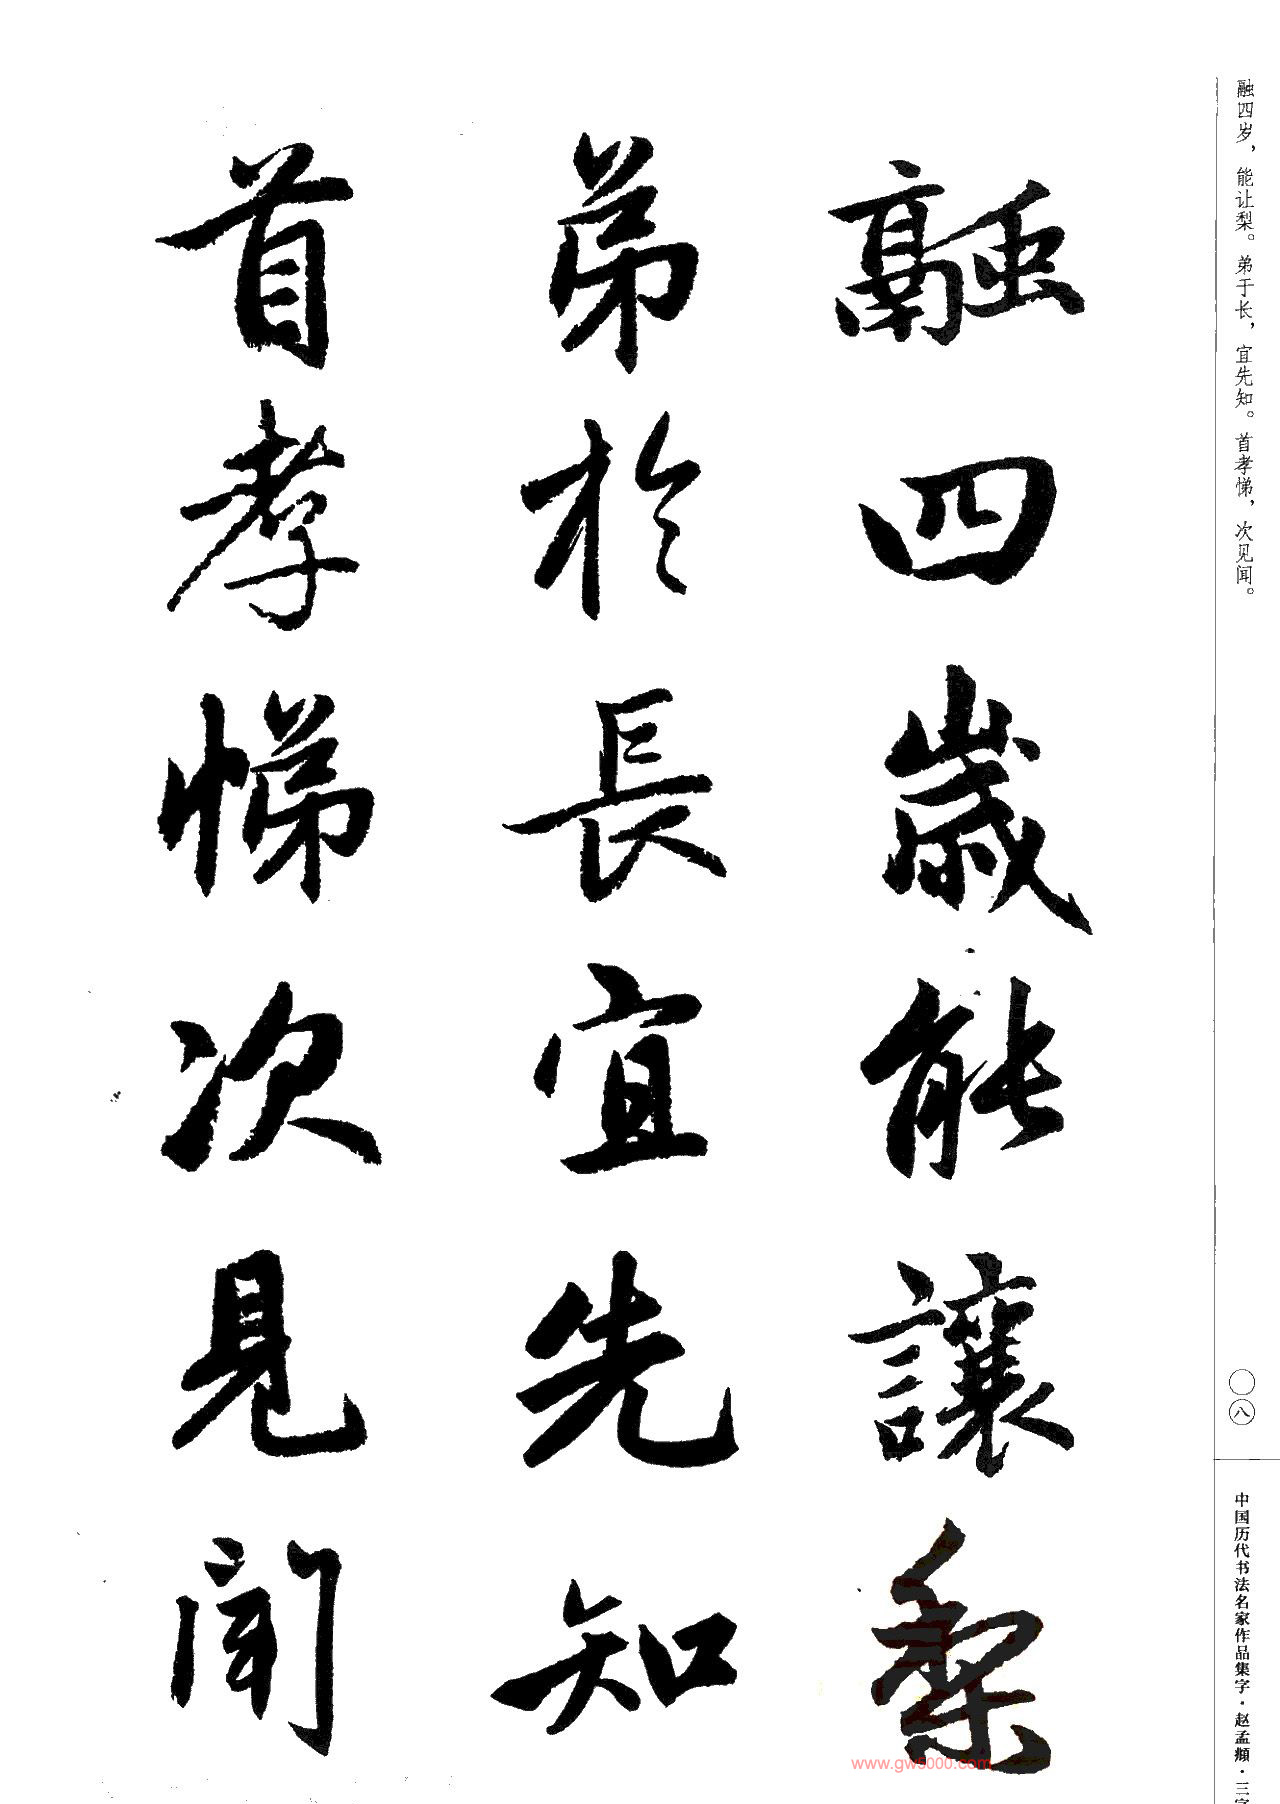 融四岁，能让梨。弟于长，宜先知。首孝悌，次见闻。
融四歲能讓梨
弟於長宜先知
首孝悌次見聞
〇八
中国历代书法名家作品集字·赵孟頫·三字
www.gw5000.com